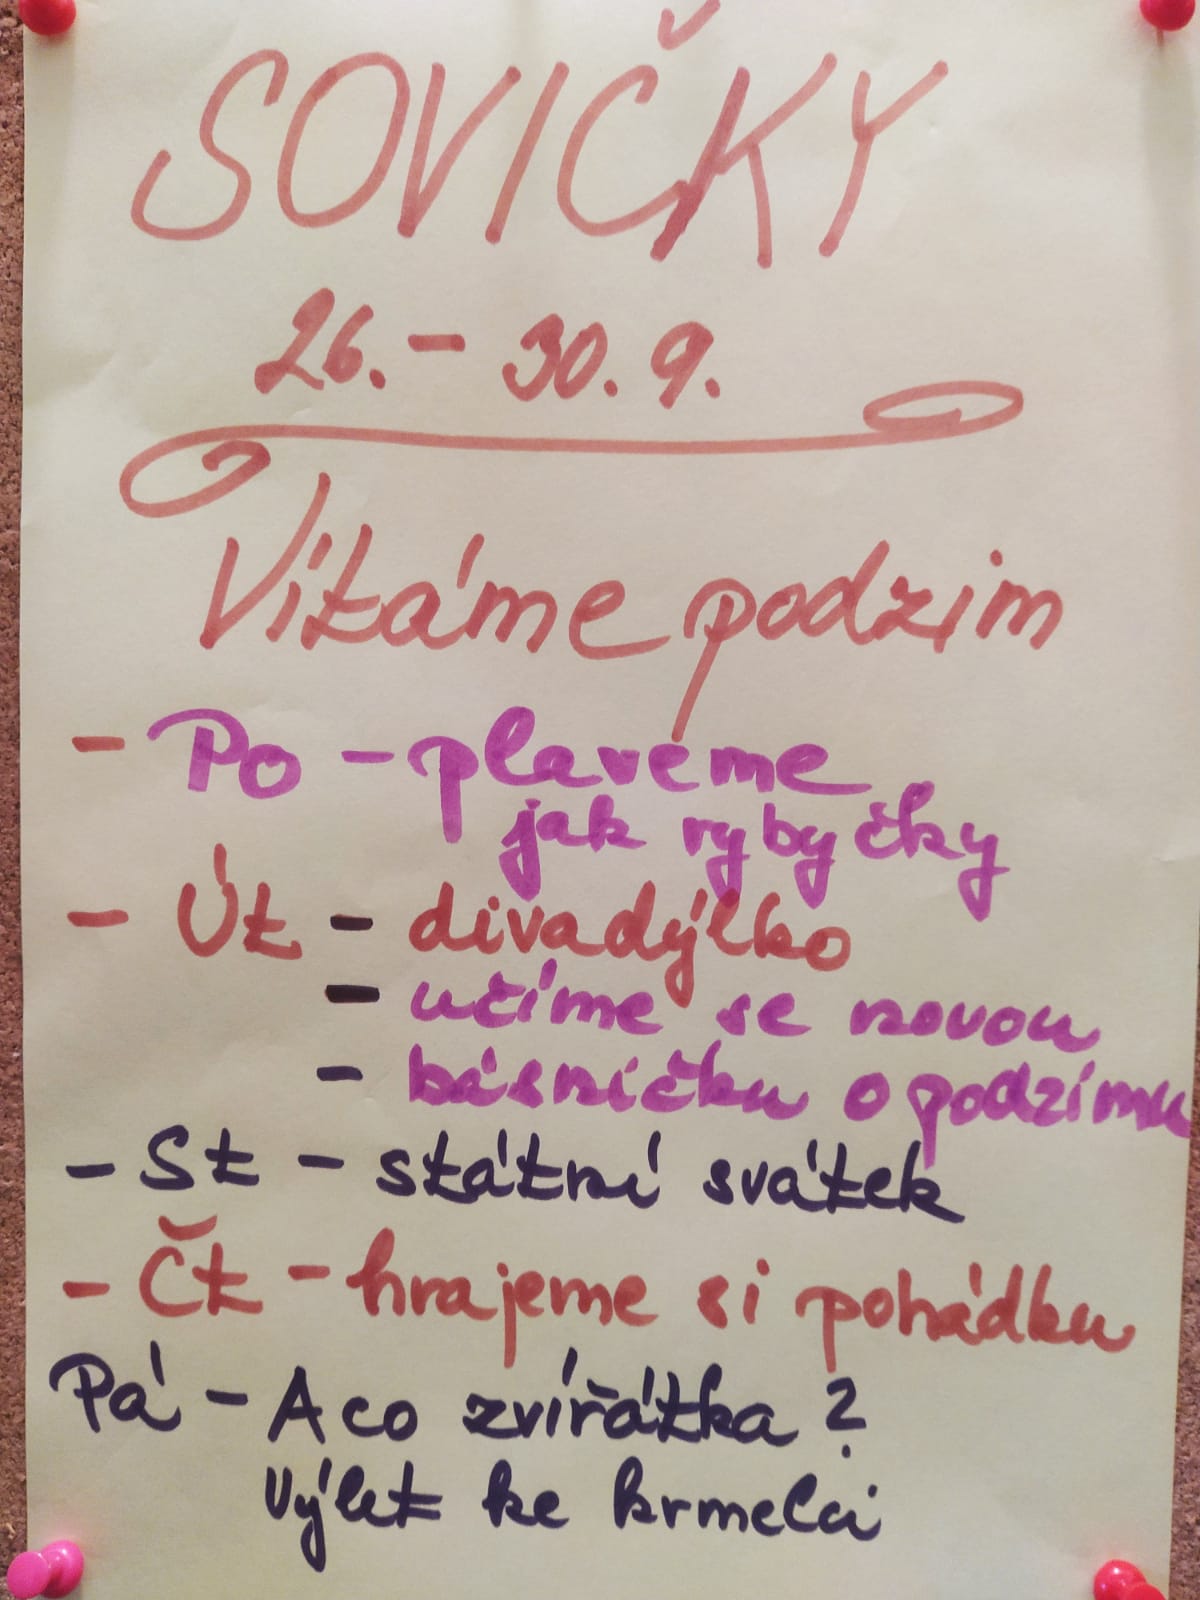 SOVIČKY
26. - 30. 9.
Vítáme podzim
- Po - plaveme
jak rybyčky
- Út - divadýlko
- učíme se novou
- básničku o podzimu
- St - státní svátek
- Čt - hrajeme si pohádku
Pá - A co zvířátka?
Výlet ke krmelci